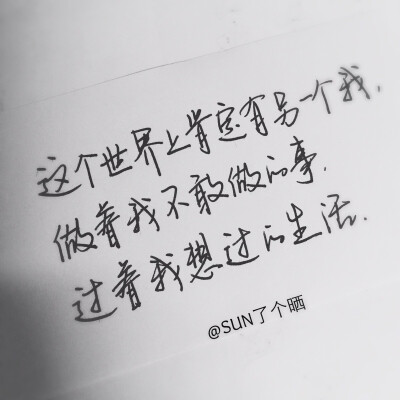 这个世界上肯定有另一个我,
做着我不敢做的事.
过着我想过的生活.
@SUN了个晒